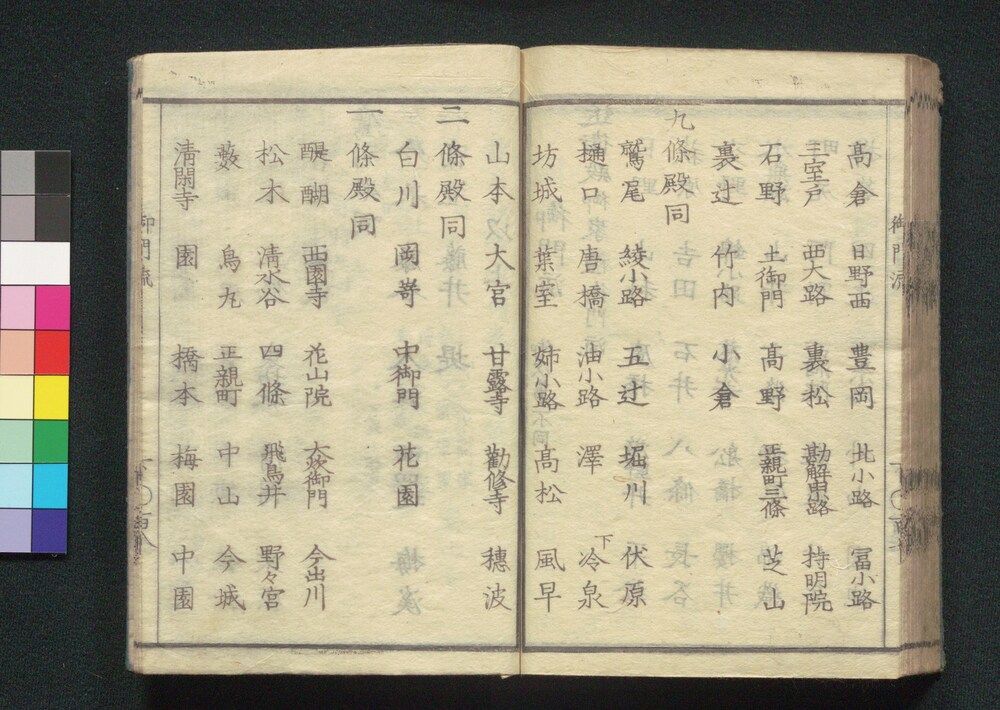 高倉 日野西 豊岡 北小路 冨小路
三室戸 西大路 裏松 勘解由小路 持明院
石野 土御門 高野 正親町三條 芝山
裏辻 竹内 小倉
九條殿同
鷲尾 綾小路 五辻 堀川 伏原
樋口 唐橋 油小路 澤 下冷泉
坊城 葉室 姉小路 高松 風早
山本 大宮 甘露寺 勧修寺 穂波
二條殿同
白川 岡嵜 中御門 花園
一條殿同
醍醐 西園寺 花山院 大炊御門 今出川
松木 清水谷 四條 飛鳥井 野々宮
薮 烏丸 正親町 中山 今城
清閑寺 園 橋本 梅園 中園
御門流
御門流